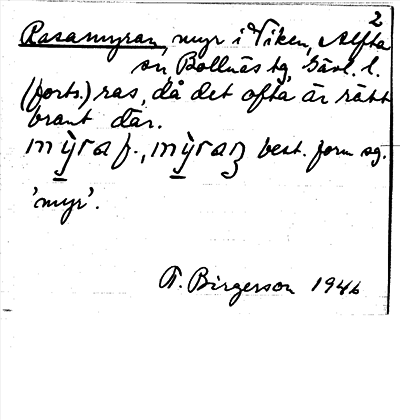 2
Rasamyran, myr i Viken, Alfta
sn Bollnäs tg, Gävl. l.
(forts.) ras, då det ofta är rätt
brant där.
mỳra f., mỳraꞃ best. form sg.
'myr'.
T. Birgerson 1946